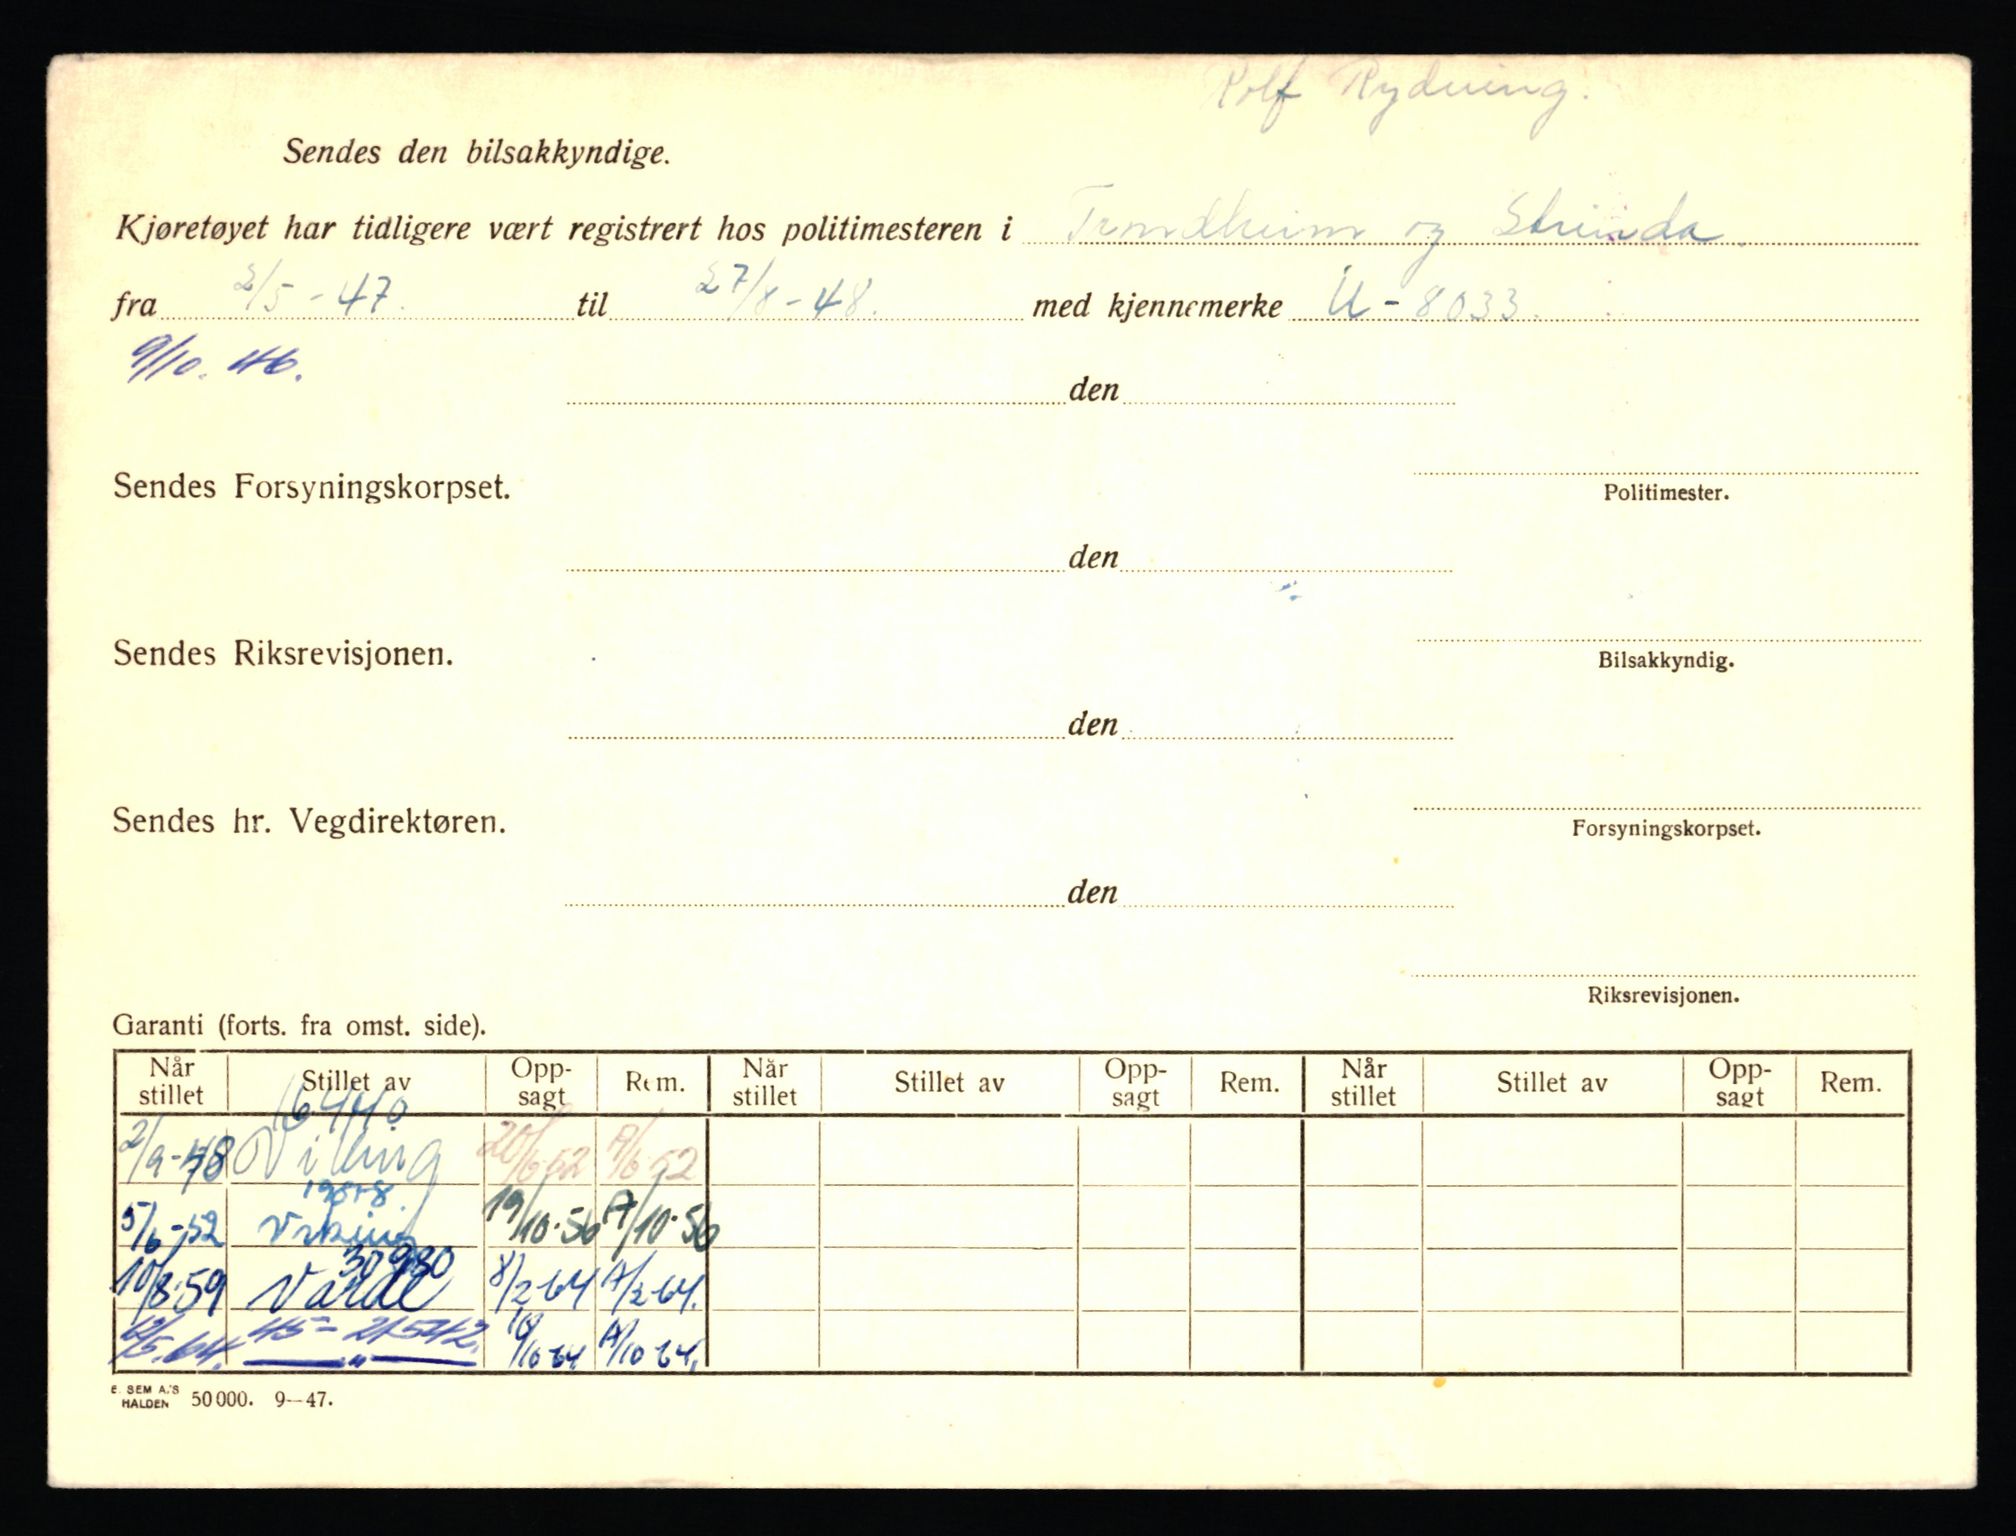 Rolf Rydning.
Sendes den bilsakkyndige.
Kjøretøyet har tidligere vært registrert hos politimesteren i Trondheim og Strinda.
fra 2/5-47. til 27/8-48. med kjennemerke U-8033.
9/10. 46.
den
Sendes Forsyningskorpset.
Politimester.
den
Sendes Riksrevisjonen.
Bilsakkyndig.
den
Sendes hr. Vegdirektøren.
Forsyningskorpset.
den
Riksrevisjonen.
Garanti (forts. fra omst. side).
Når stillet Stillet av Opp-sagt Rem. Når stillet Stillet av Opp-sagt Rem. Når stillet Stillet av Opp-sagt Rem.
16440
2/9-48 Viking 20/6-52 A/6-52
5/6-52 Viking 19/10-56 A/10-56
30980
10/8-59 Varde 8/2-64 A/2-64.
/5.64. 45-21542. /10-64 A/10-64.
E. SEM A.'S HALDEN 50 000. 9—47.